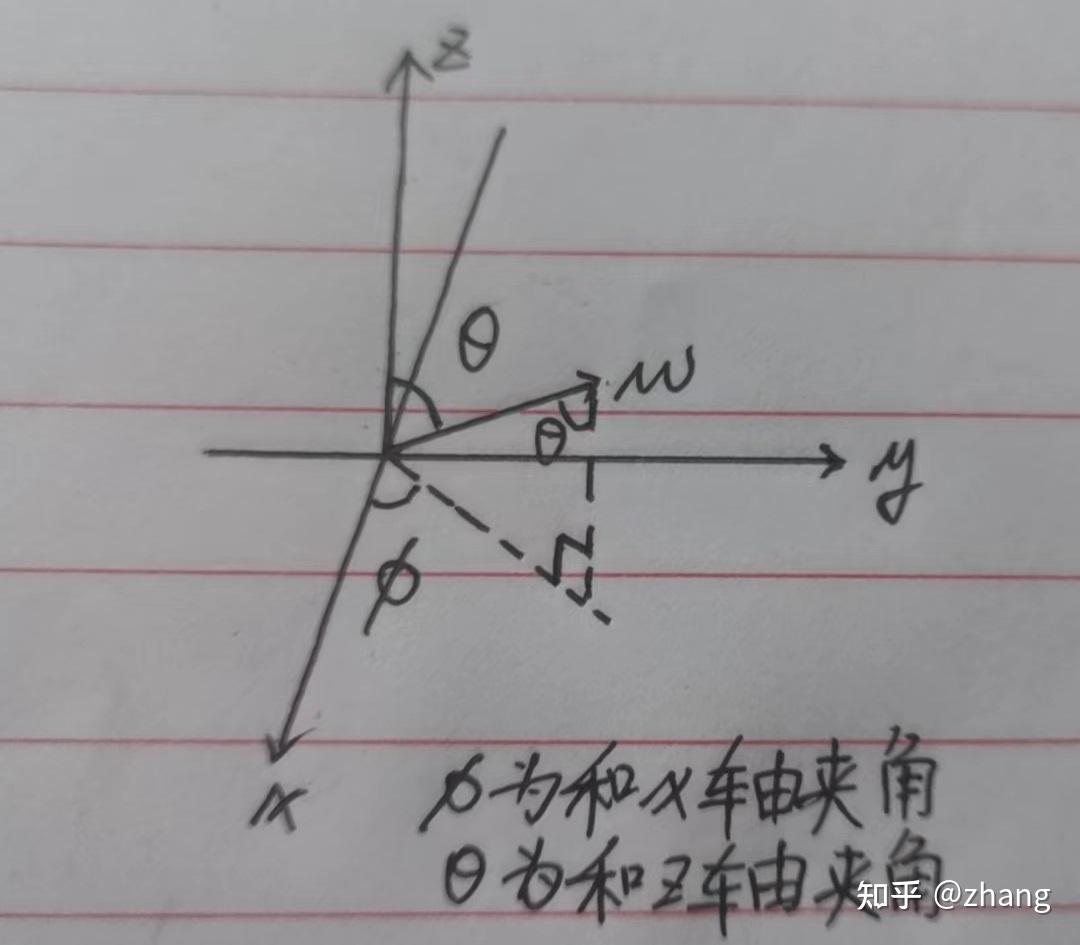 z
θ
w
θ
y
ϕ
x
ϕ为和x轴夹角
θ为和z轴夹角
知乎 @zhang